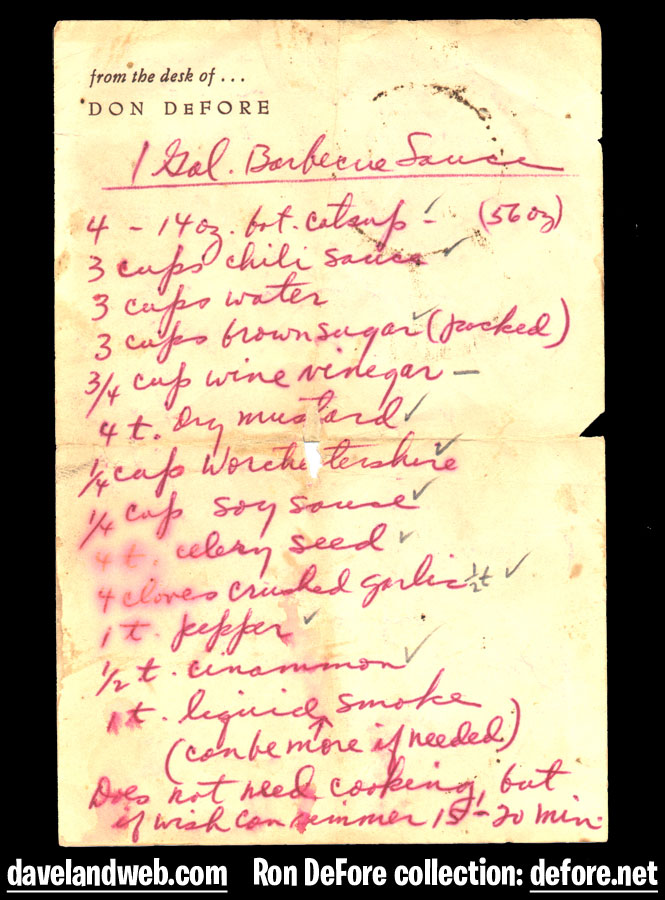 from the desk of ...
DON DEFORE
1 Gal. Barbecue Sauce
4 - 14 oz. bot. catsup - (56 oz)
3 cups chili sauce
3 cups water
3 cups brown sugar (packed)
3/4 cup wine vinegar -
4 t. Dry mustard
1/4 cup Worchetershire
1/4 cup soy sause
4 t. celery seed
4 cloves crushed garlic 1/2 t
1 t. pepper
1/2 t. cinammon
1 t. liquid smoke
(can be more if needed)
Does not need cooking, but
if wish can simmer 15-20 min.
davelandweb.com Ron DeFore collection: defore.net